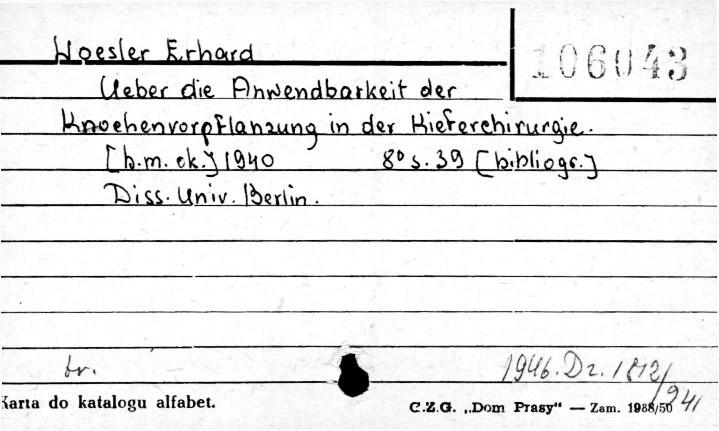 Hoesler Erhard
106043
Ueber die Anwendbarkeit der
Knochenvorpflanzung in der Kieferchirurgie.
[b.m.ek.] 1940 8° s. 39 [bibliogr.]
Diss. Univ. Berlin.
tr.
1946. Dz. 1812/941
Karta do katalogu alfabet.
C.Z.G. „Dom Prasy" — Zam. 1988/50